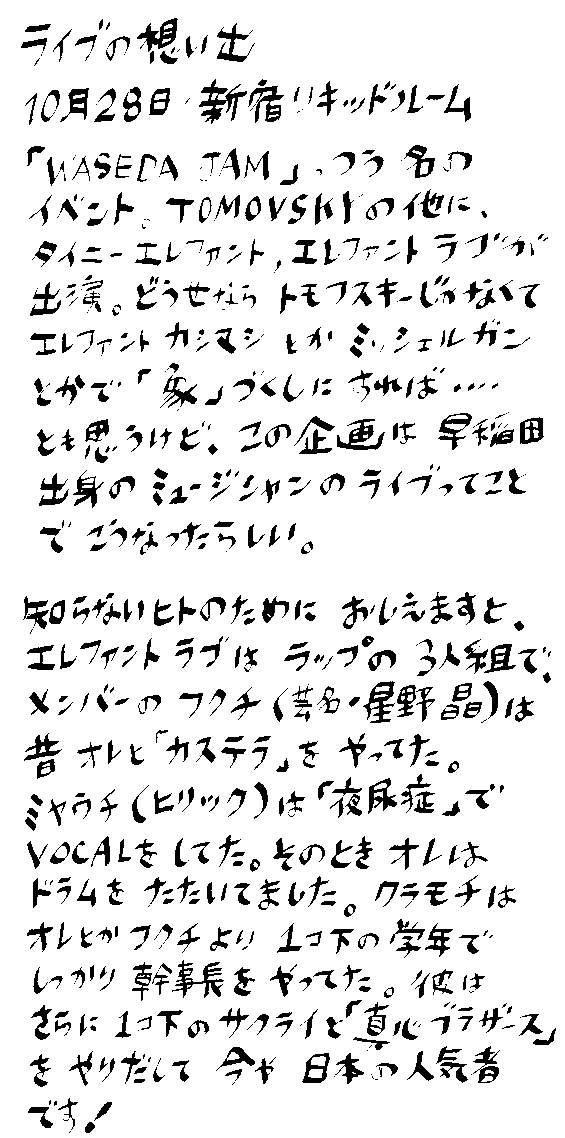 ライブの想い出
10月28日・新宿リキッドルーム
「WASEDA JAM」っつう名の
イベント。TOMOVSKYの他に、
タイニーエレファント,エレファントラブが
出演。どうせなら トモフスキーじゃなくて
エレファントカシマシとか ミッシェルガン
とかで「象」づくしにすれば‥‥
とも思うけど、この企画は 早稲田
出身の ミュージシャンの ライブってこと
で こうなったらしい。
知らないヒトのために おしえますと、
エレファントラブは ラップの 3人組で、
メンバーの フクチ(芸名・星野晶)は
昔 オレと「カステラ」を やってた。
ミヤウチ(ヒリック)は「夜尿症」で
VOCALを してた。そのとき オレは
ドラムを たたいてました。クラモチは
オレとかフクチより 1コ下の学年で
しっかり 幹事長を やってた。彼は
さらに 1コ下のサクライと「真心ブラザース」
を やりだして 今や 日本の人気者
です!